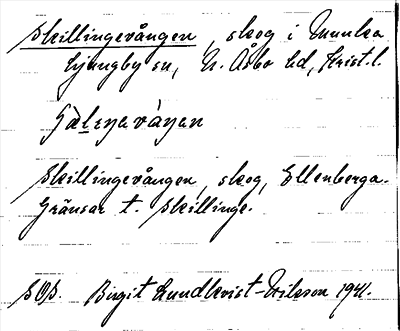 Skillingevången, skog i Munka
Ljungby sn, N. Åsbo hd, Krist. l.
Skillingevången, skog, Ellenberga.
Gränsar t. Skillinge.
SOB. Birgit Lundkvist-Nilsson 1941.